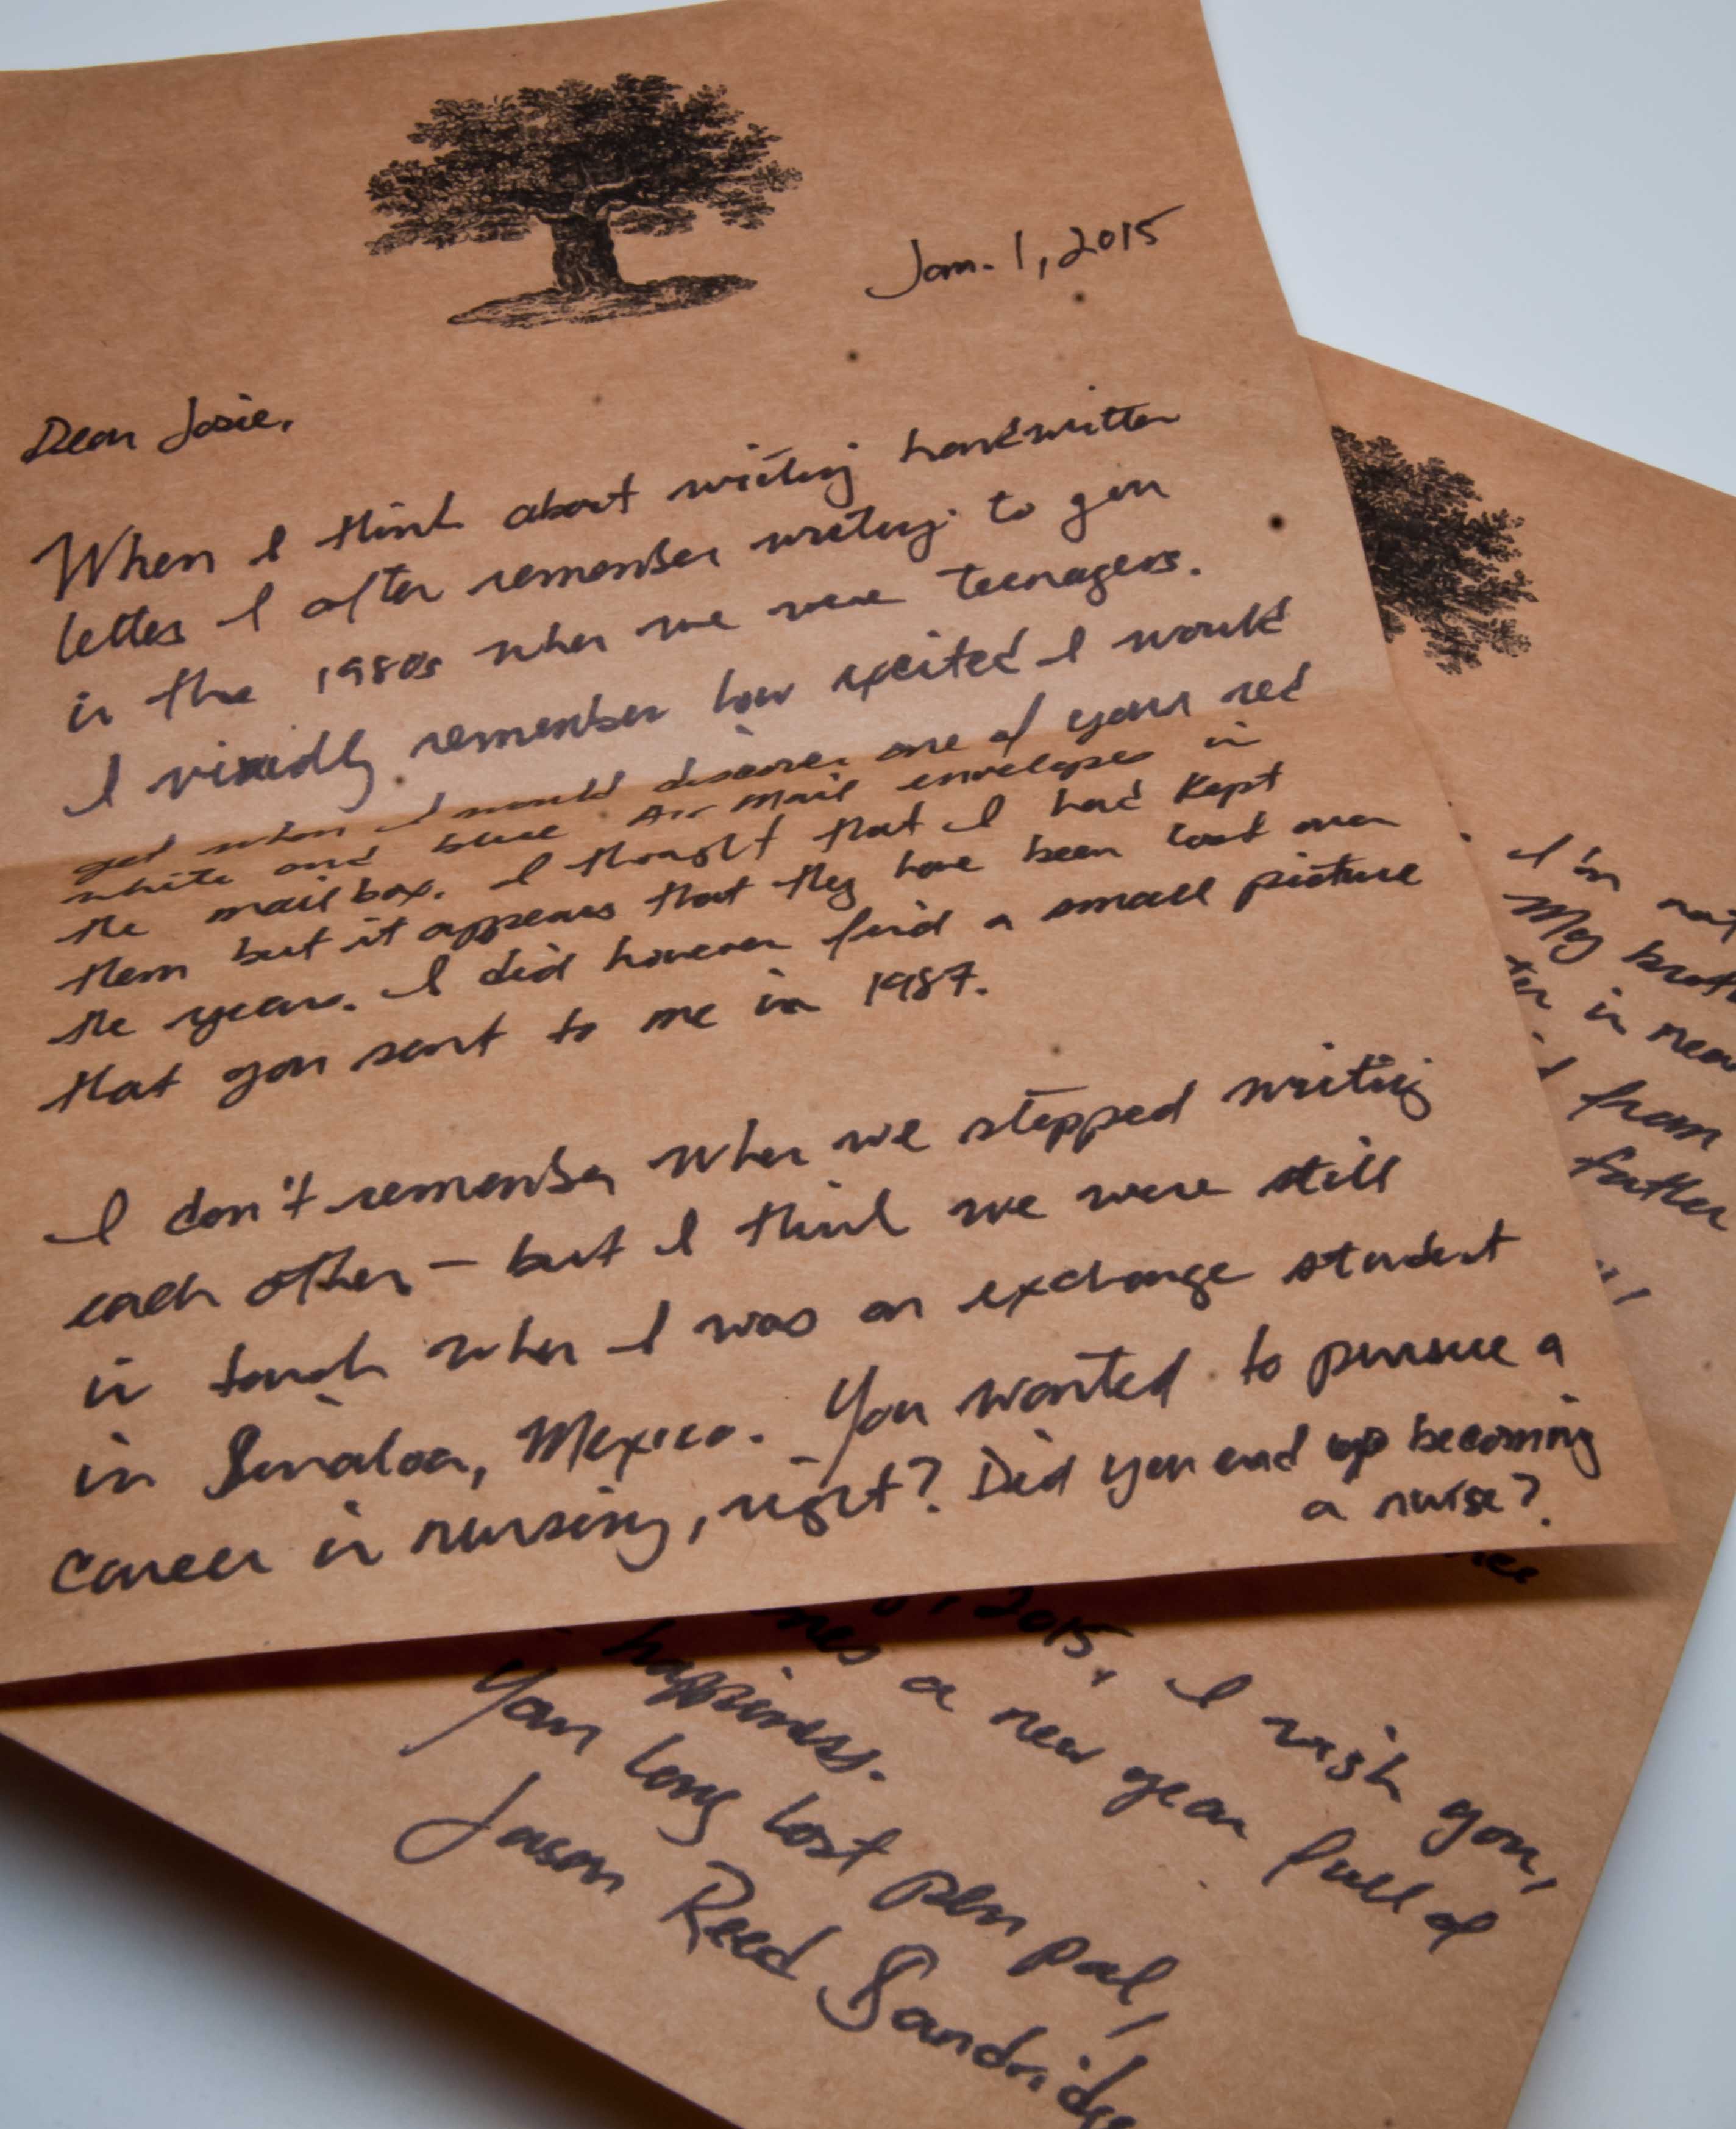 Jan. 1, 2015
Dear Josie,
When I think about writing handwritten
letters I often remember writing to you
in the 1980s when we were teenagers.
I vividly remember how excited I would
get when I would discover one of your red
white and blue Air Mail envelopes in
the mailbox. I thought that I had kept
them but it appears that they have been lost over
the years. I did however find a small picture
that you sent to me in 1987.
I don't remember when we stopped writing
each other – but I think we were still
in touch when I was an exchange student
in Sinaloa, Mexico. You wanted to pursue a
career in nursing, right? Did you end up becoming
a nurse?
I'm not
My
in
from
father
2015, I wish you,
a new year full of
happiness.
Your long lost pen pal,
Jason Reed Sandridge